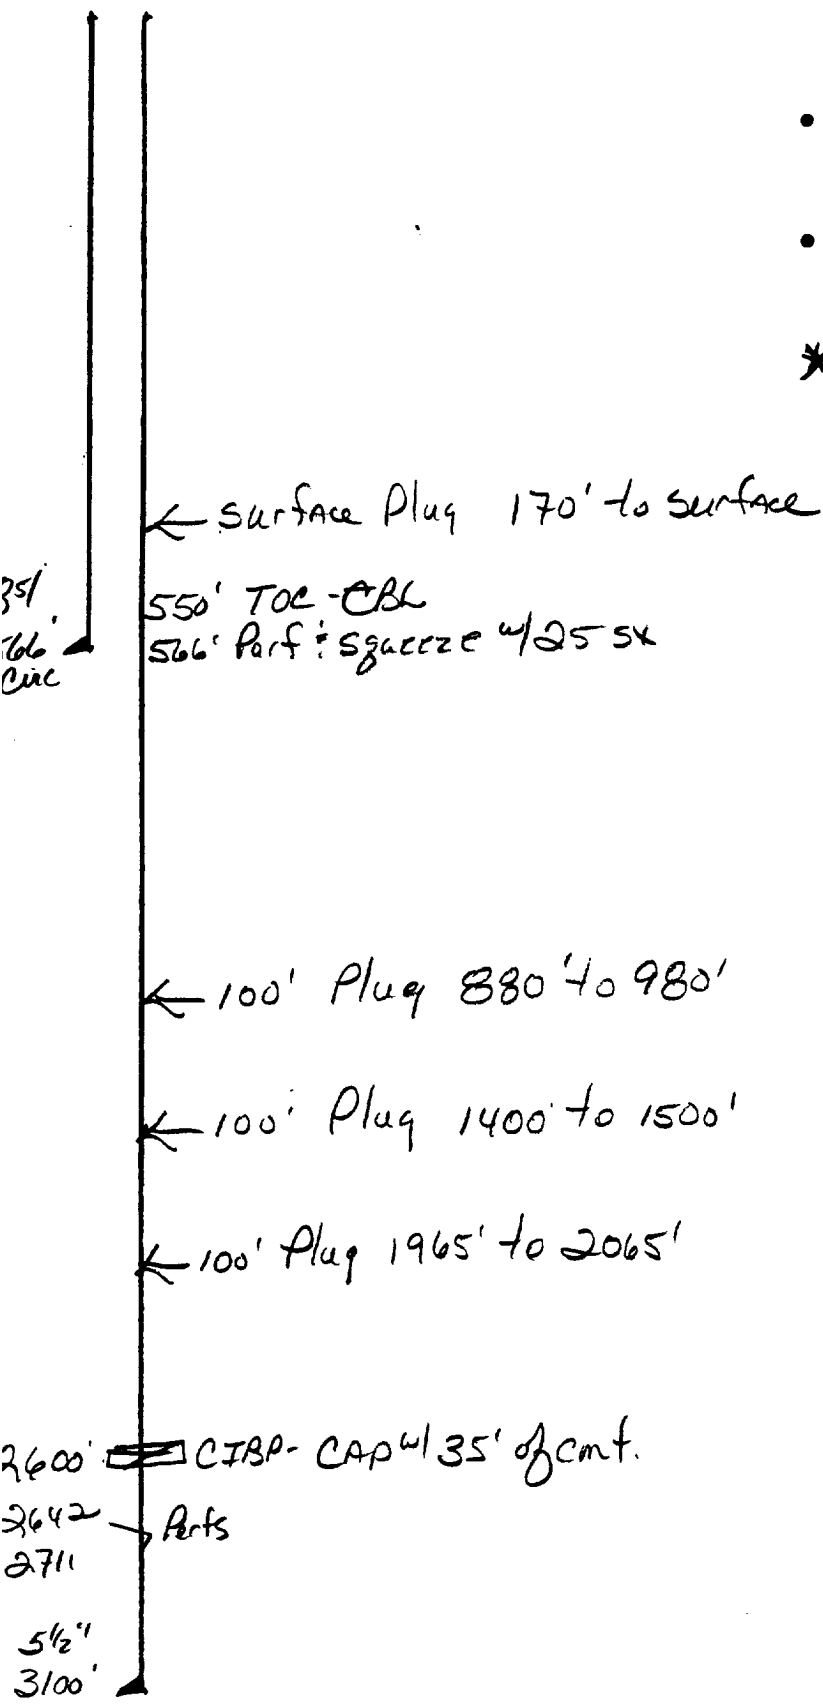 ← Surface Plug 170' to surface
351
550' TOC - CBL
566'
566' Perf & squeeze w/25 sx
Circ
← 100' Plug 880' to 980'
← 100' Plug 1400' to 1500'
← 100' Plug 1965' to 2065'
2600' CIBP - CAP w/ 35' of cmt.
2642
Perfs
2711
5 1/2"
3100'